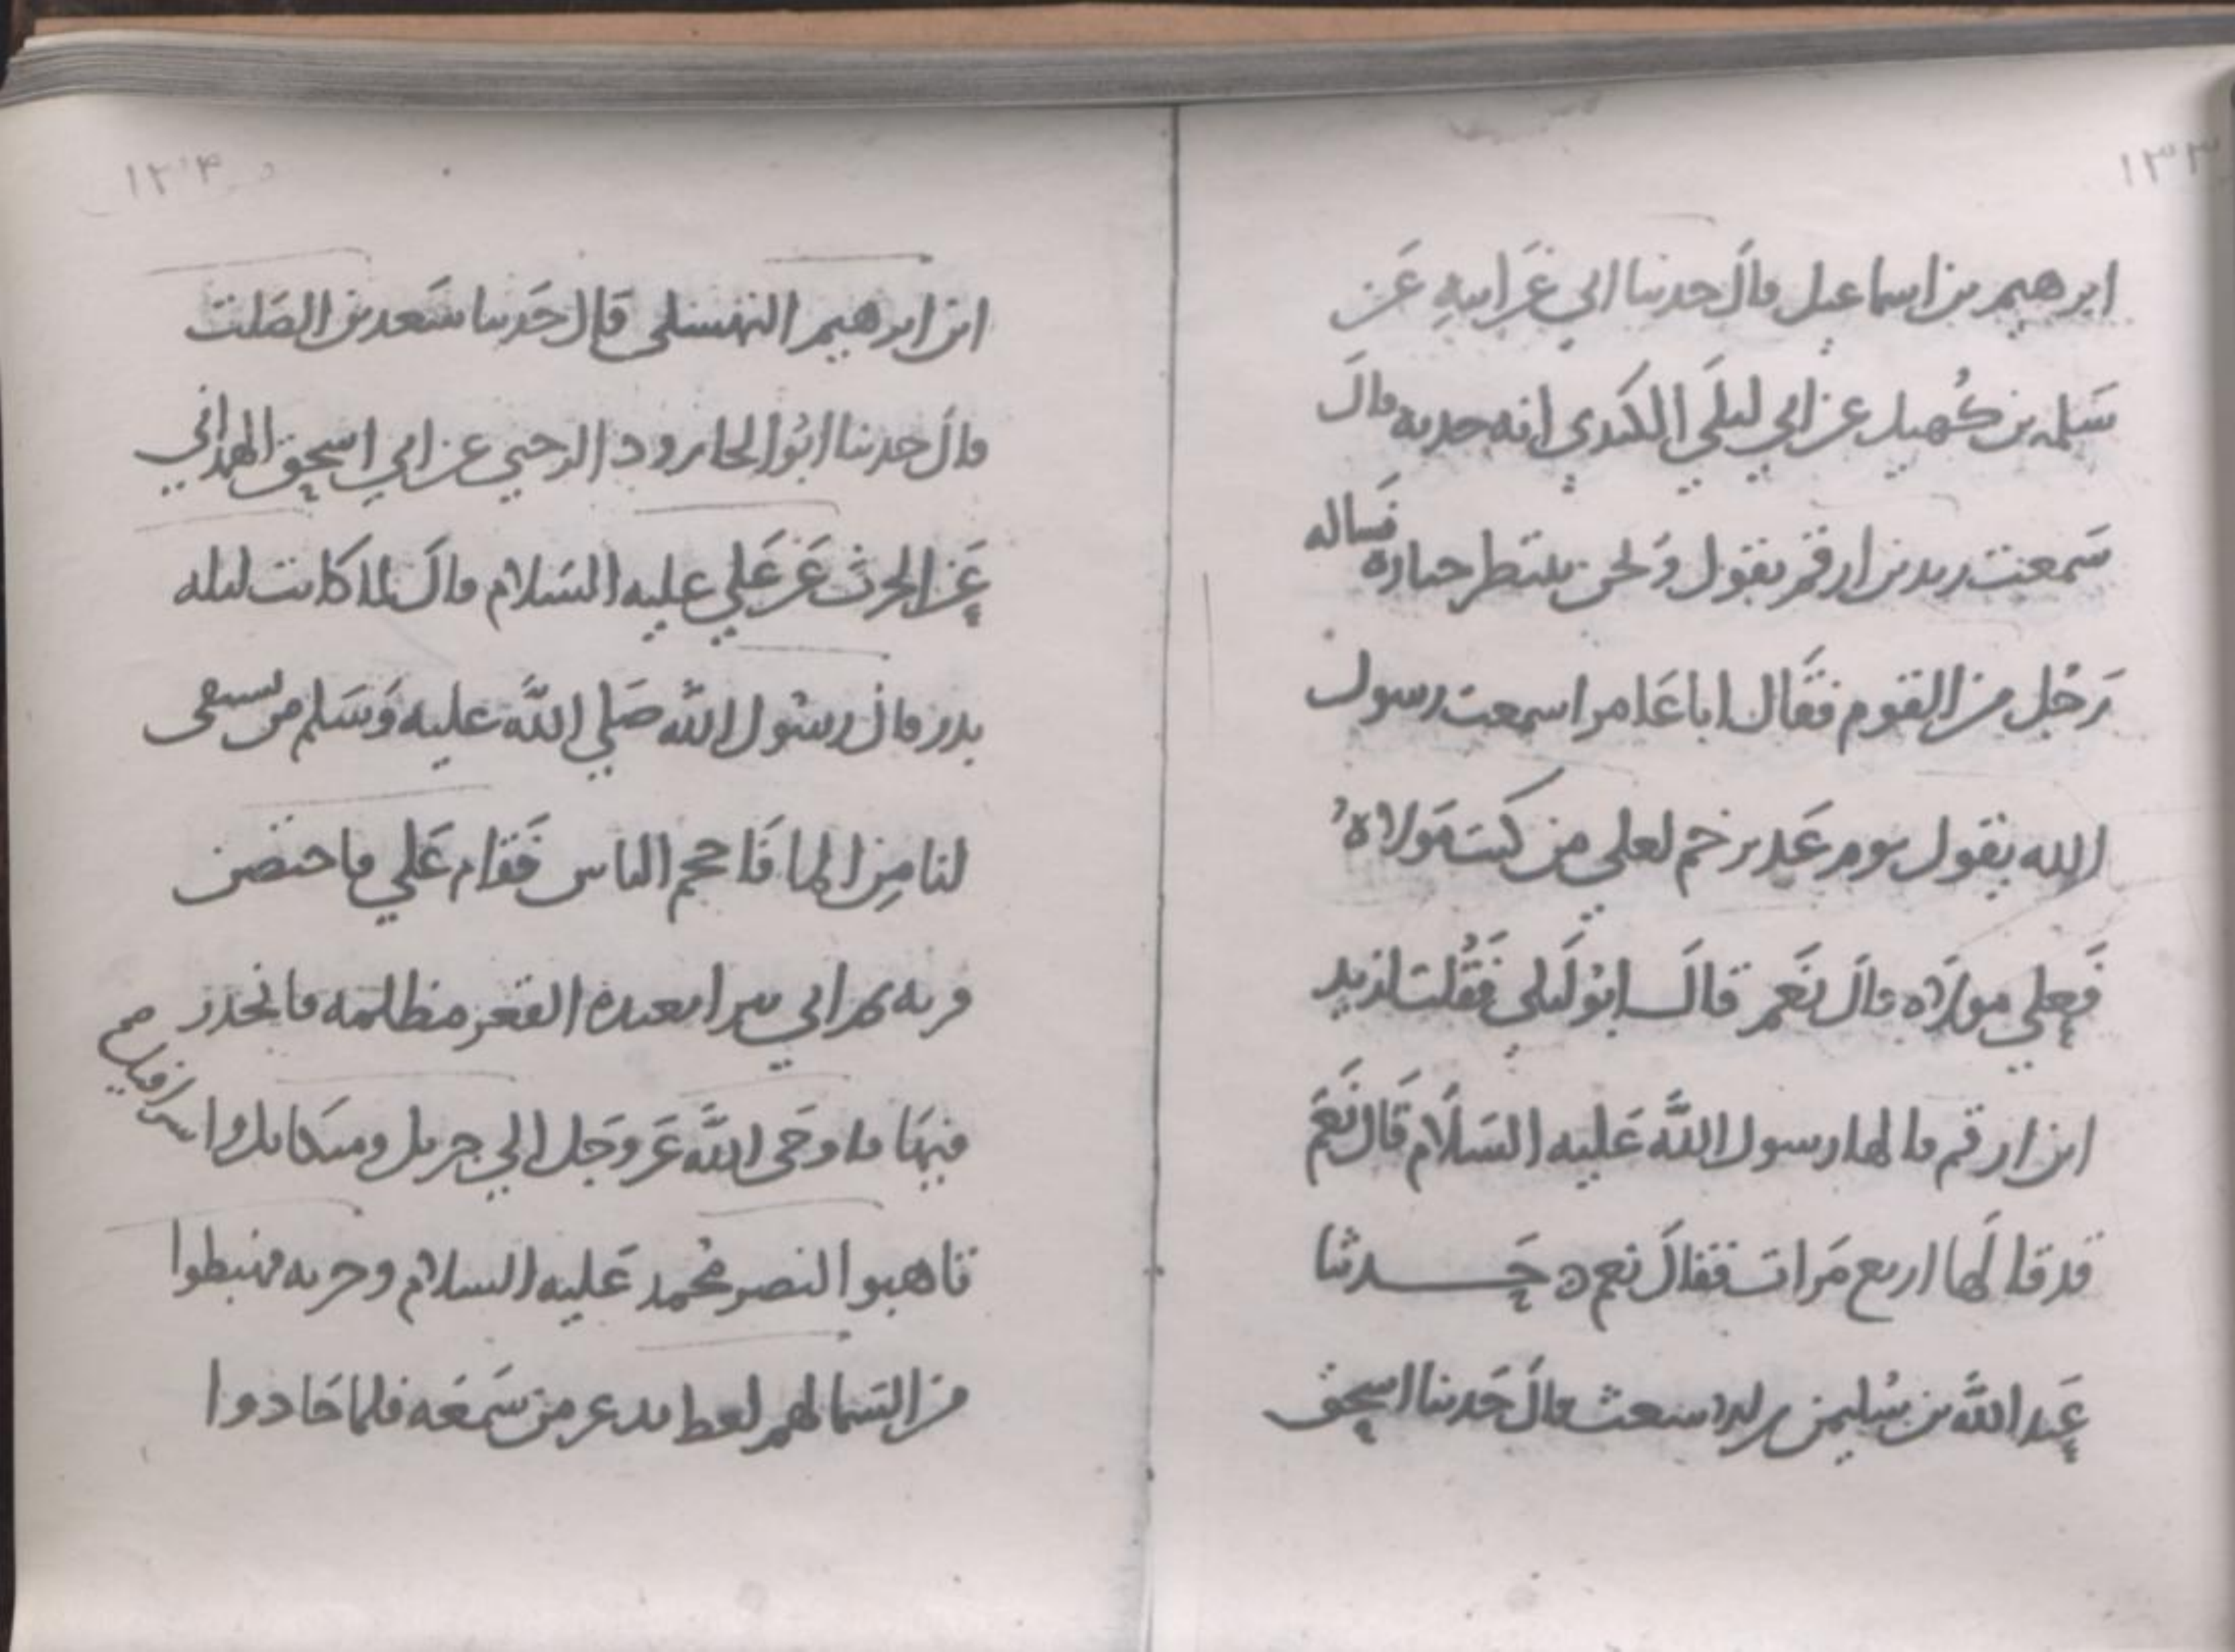 ١٣٣
ابرهيم بن اسماعيل قال حدثنا ابي عن ابيه عن
سلمه بن كهيل عن ابي ليلي الكندي انه حدثه قال
سمعت زيد بن ارقم يقول ونحن ننتظر جنازه فساله
رجل من القوم فقال ابا عامر اسمعت رسول
الله يقول يوم غدير خم لعلي من كنت مولاه
فعلي مولاه قال نعم قال ابو ليلى فقلت لزيد
ابن ارقم قالها رسول الله عليه السلام قال نعم
قد قالها اربع مرات فقال نعم ه حدثنا
عبد الله بن سليمن بن الاشعث قال حدثنا اسحق
١٣٤
ابن ابرهيم النهشلي قال حدثنا سعد بن الصلت
قال حدثنا ابو الجارود الرحبي عن ابي اسحق الهمداني
عن الحرث عن علي عليه السلام قال لما كانت ليله
بدر قال رسول الله صلي الله عليه وسلم من يستقي
لنا من الما فاحجم الناس فقام علي فاحتضن
قربه ثم اتي بيرا بعيده القعر مظلمه فانحدر
فيها فاوحى الله عز وجل الي جبريل وميكايل واسرافيل صح
تاهبوا لنصر محمد عليه السلام وحزبه فهبطوا
من السما لهم لغط يذعر من سمعه فلما حاذوا